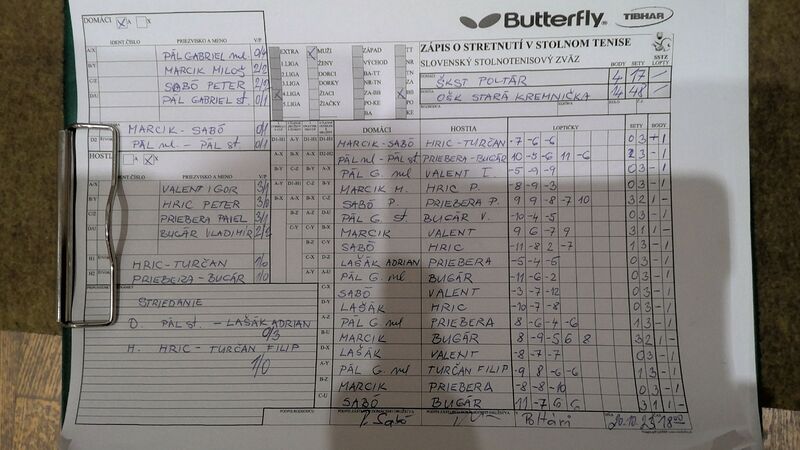 DOMÁCI A X
Butterfly
TIBHAR
IDENT.ČÍSLO PRIEZVISKO A MENO V/P
A/X PÁL GABRIEL ml 0/4
B/Y MARCIK MILOŠ 2/2
C/Z SABÓ PETER 2/2
D/U PÁL GABRIEL st. 0/1
MARCIK - SABÓ 0/1
D2 PÁL ml - PÁL st 0/1
HOSTIA A X
IDENT.ČÍSLO PRIEZVISKO A MENO V/P
A/X VALENT IGOR 3/1
B/Y HRIC PETER 3/0
C/Z PRIEBERA PAVEL 3/1
D/U BUGÁR VLADIMÍR 2/2
H1 HRIC - TURČAN 1/0
H2 PRIEBERA - BUGÁR 1/0
STRIEDANIE
D. PÁL st. - LAŠÁK ADRIAN
0/3
H. HRIC - TURČAN FILIP
1/0
EXTRA MUŽI ZÁPAD TT
1.LIGA ŽENY VÝCHOD NR
2.LIGA DORCI BA-TT TN
3.LIGA DORKY NR-TN ZA
4.LIGA ŽIACI ZA-BB BB
5.LIGA ŽIAČKY PO-KE PO
BA KE
ZÁPIS O STRETNUTÍ V STOLNOM TENISE
SLOVENSKÝ STOLNOTENISOVÝ ZVÄZ
SSTZ
BODY SETY LOPTY
DOMÁCI ŠKST POLTÁR 4 17 /
HOSTIA OŠK STARÁ KREMNIČKA 14 48 /
DOMÁCI HOSTIA LOPTIČKY SETY BODY
MARCIK - SABÓ HRIC - TURČAN -7 -6 -6 0 3 - 1
PÁL ml - PÁL st PRIEBERA - BUGÁR 10 -5 -6 11 -6 2 3 - 1
PÁL G. ml VALENT I. -5 -9 -9 0 3 - 1
MARCIK M. HRIC P. -8 -9 -3 0 3 - 1
SABÓ P. PRIEBERA P. 9 9 -8 -7 10 3 2 1 -
PÁL G. st BUGÁR V. -10 -4 -5 0 3 - 1
MARCIK VALENT 9 6 -7 9 3 1 1 -
SABÓ HRIC -11 -8 2 -7 1 3 - 1
LAŠÁK ADRIAN PRIEBERA -5 -4 -5 0 3 - 1
PÁL G. ml BUGÁR -11 -6 -2 0 3 - 1
SABÓ VALENT -3 -7 -12 0 3 - 1
LAŠÁK HRIC -10 -7 -8 0 3 - 1
PÁL G. ml PRIEBERA 8 -6 -4 -6 1 3 - 1
MARCIK BUGÁR 8 -9 -5 6 8 3 2 1 -
LAŠÁK VALENT -8 -7 -7 0 3 - 1
PÁL G. ml TURČAN FILIP -9 8 -6 -6 1 3 - 1
MARCIK PRIEBERA -8 -8 -10 0 3 - 1
SABÓ BUGÁR 11 -7 6 6 3 1 1 -
P. Sabó Poltári 20.10.23 18:00